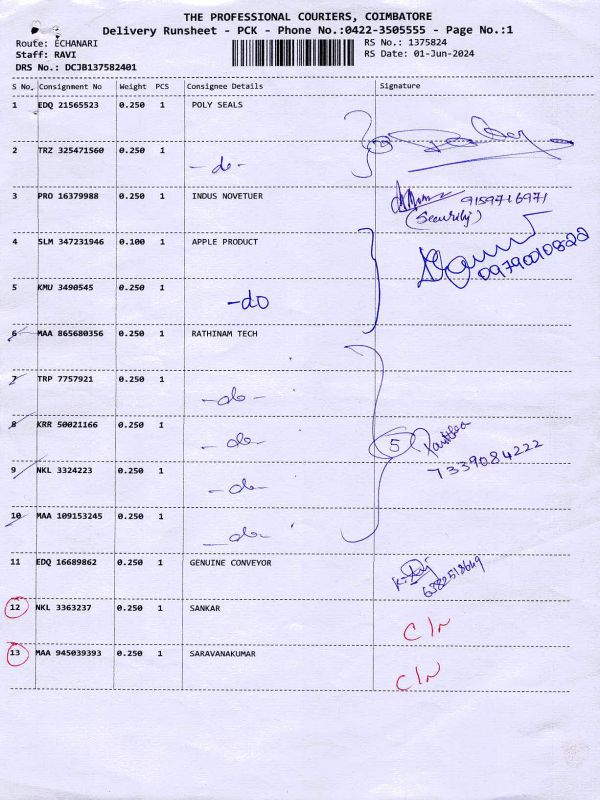 THE PROFESSIONAL COURIERS, COIMBATORE
Delivery Runsheet - PCK - Phone No.:0422-3505555 - Page No.:1
Route: ECHANARI
RS No.: 1375824
Staff: RAVI
RS Date: 01-Jun-2024
DRS No.: DCJB137582401
S No. Consignment No Weight PCS Consignee Details Signature
1 EDQ 21565523 0.250 1 POLY SEALS
2 TRZ 325471560 0.250 1 -do-
3 PRO 16379988 0.250 1 INDUS NOVETUER 9159716971
(Security)
4 SLM 347231946 0.100 1 APPLE PRODUCT 09790010822
5 KMU 3490545 0.250 1 -do
6 MAA 865680356 0.250 1 RATHINAM TECH
7 TRP 7757921 0.250 1 -do-
8 KRR 50021166 0.250 1 -do- 5
9 NKL 3324223 0.250 1 -do- 7339084222
10 MAA 109153245 0.250 1 -do-
11 EDQ 16689862 0.250 1 GENUINE CONVEYOR
12 NKL 3363237 0.250 1 SANKAR C/N
13 MAA 945039393 0.250 1 SARAVANAKUMAR C/N